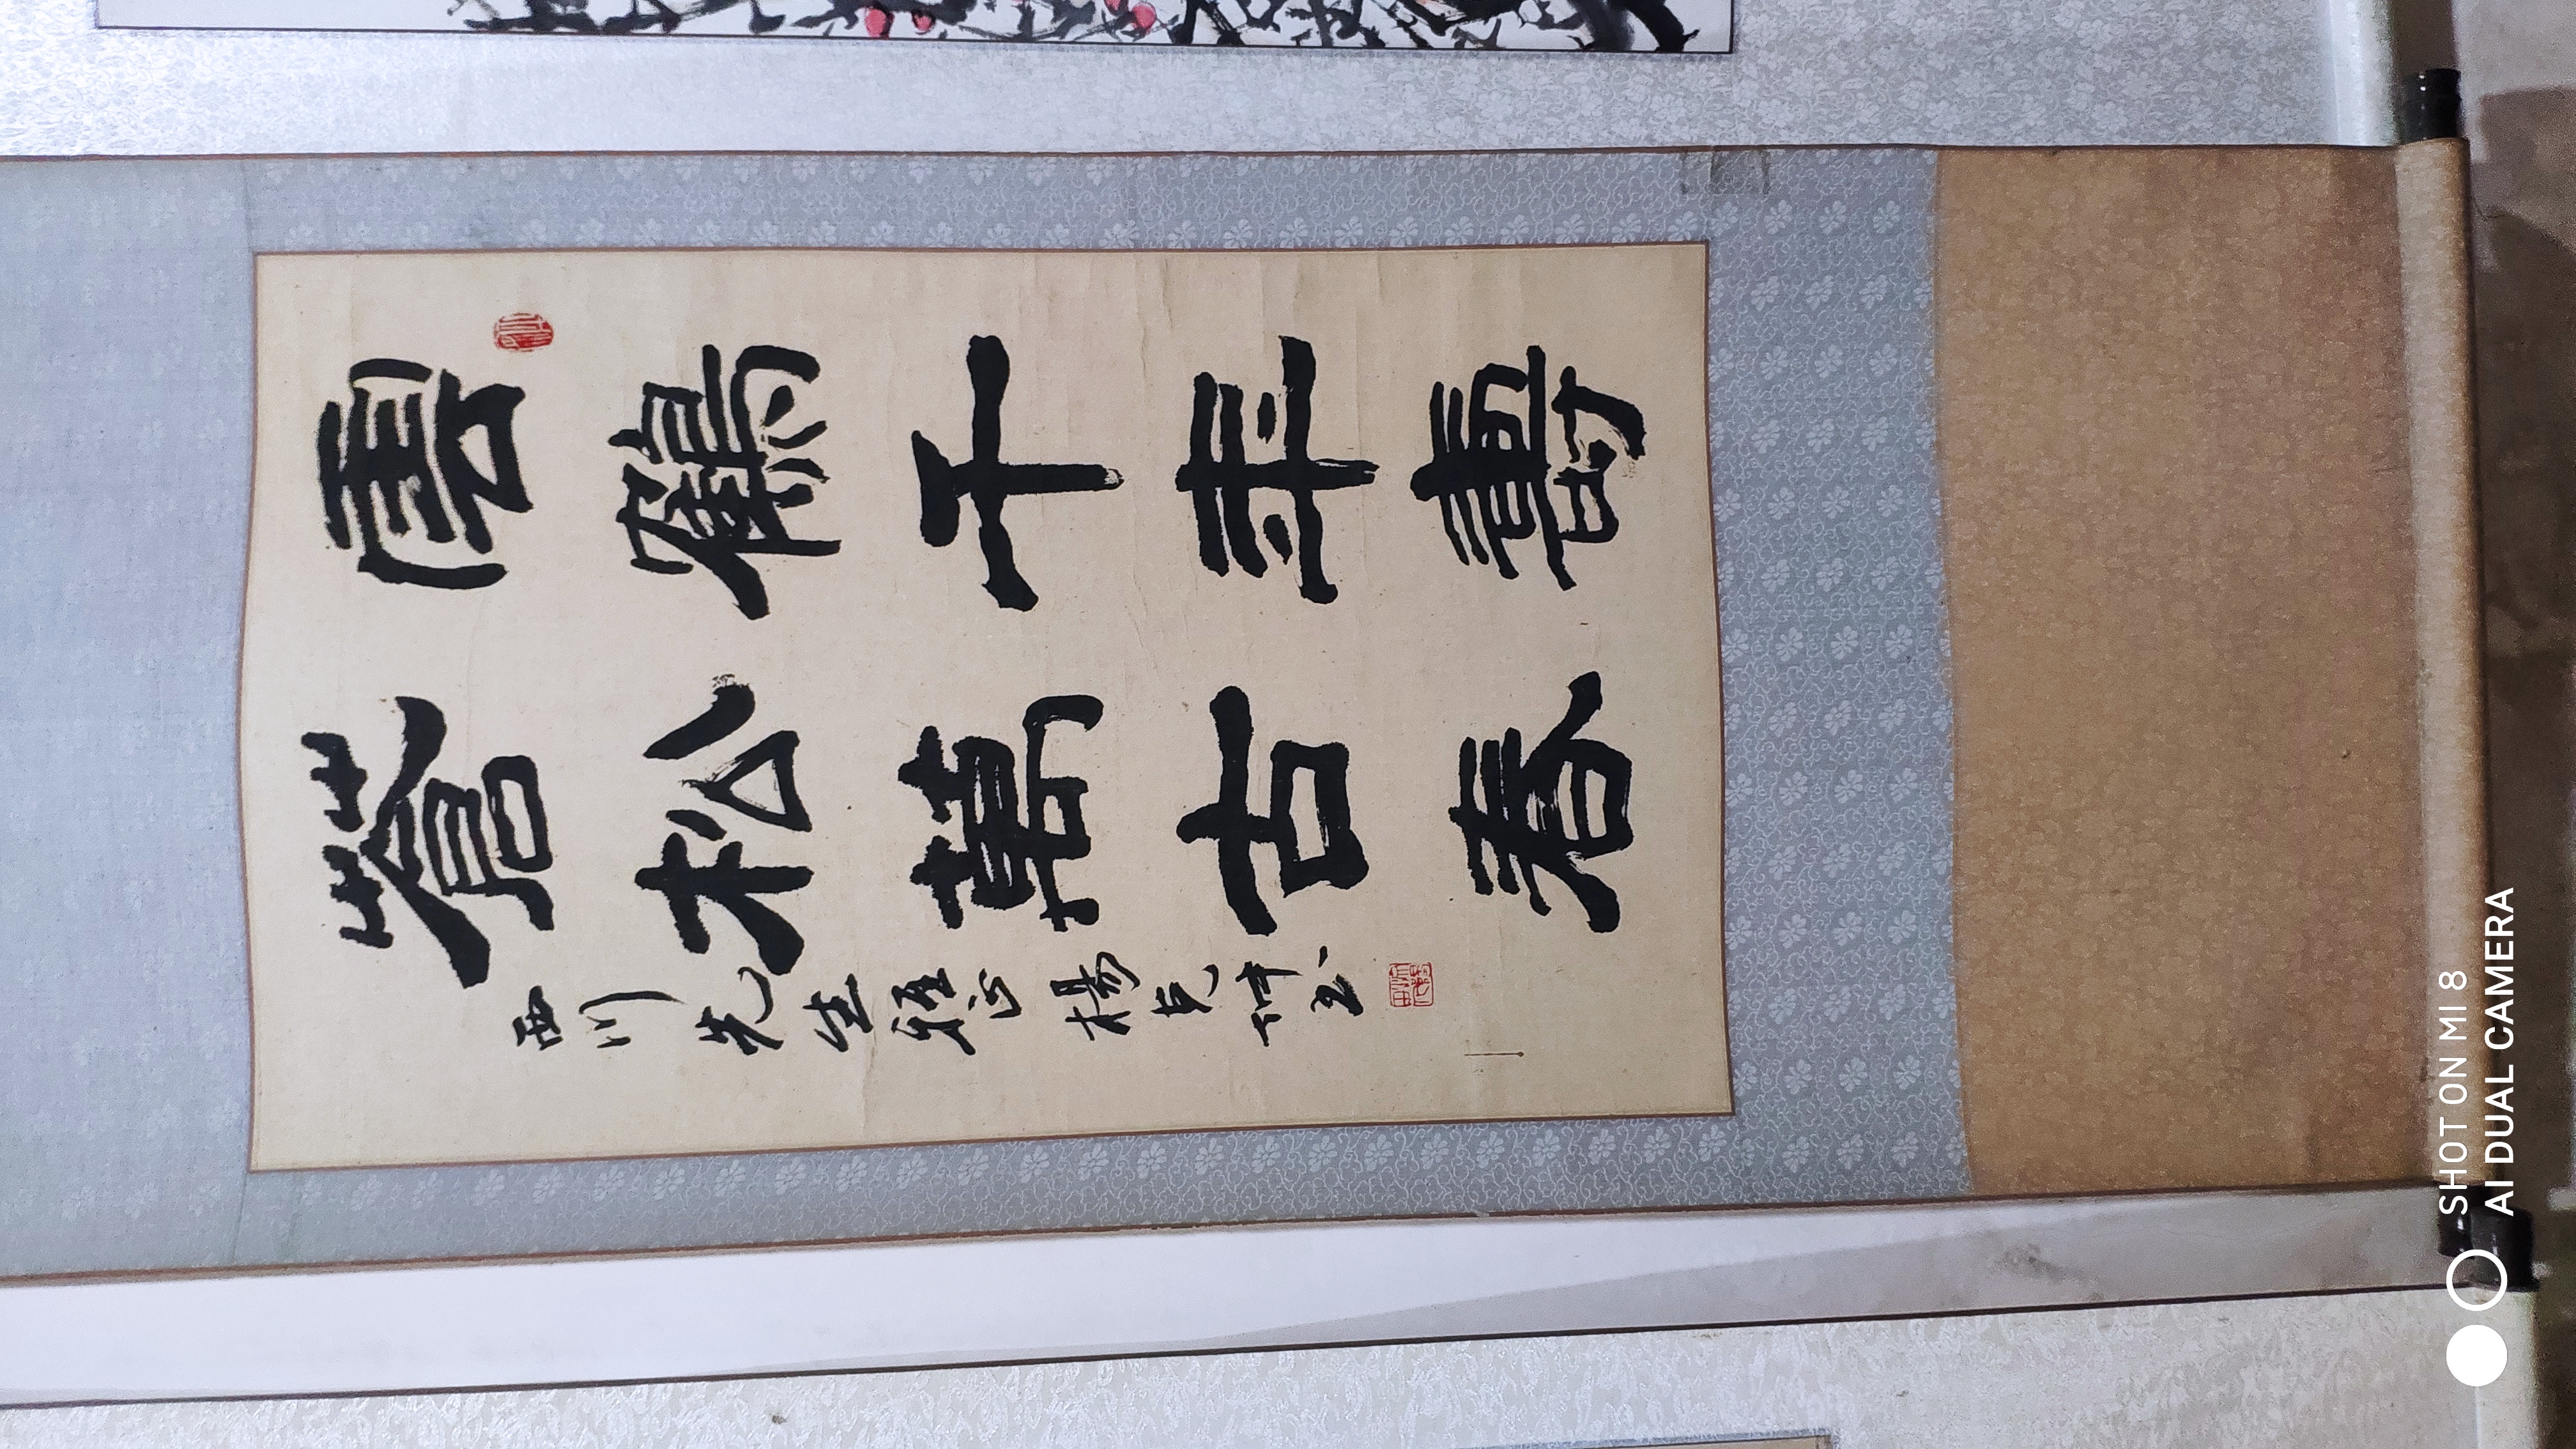 雲鶴千年壽
蒼松萬古春
西川先生雅正 楊克坪書
SHOT ON MI 8
AI DUAL CAMERA